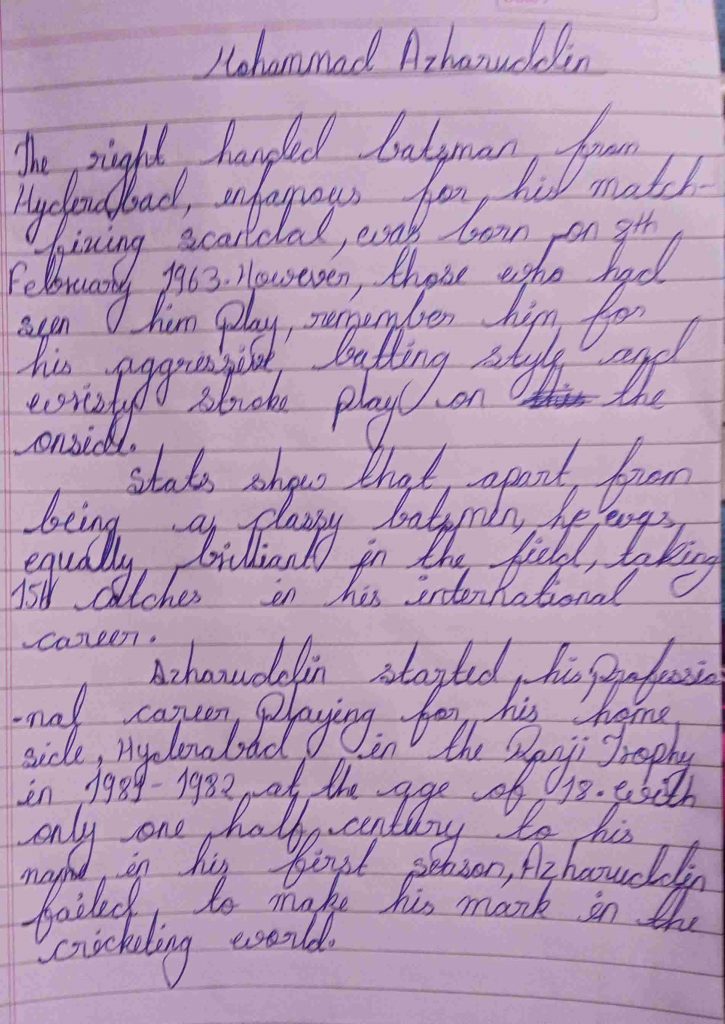 Mohammad Azharuddin
The right handed batsman from
Hyderabad, infamous for his match-
fixing scandal, was born on 8th
February 1963. However, those who had
seen him play, remember him for
his aggressive batting style and
wristy stroke play on the
onside.
Stats show that apart from
being a classy batsmen, he was
equally brilliant in the field, taking
catches in his international
career.
Azharuddin started his professio
-nal career playing for his home
side, Hyderabad in the Ranji Trophy
in 1981-1982, at the age of 18. With
only one half century to his
name in his first season, Azharuddin
failed to make his mark in the
cricketing world.